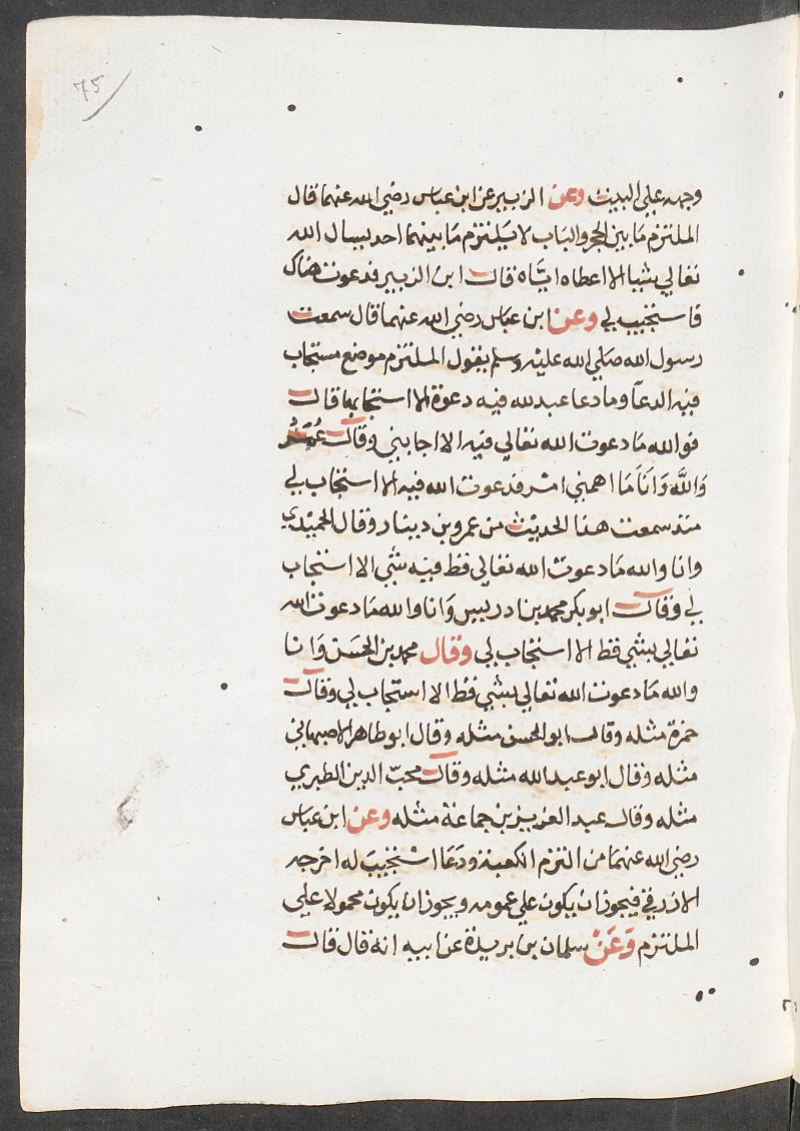 75
وجهه علي البيت وعن الزبير عن ابن عباس رضي الله عنهما قال
الملتزم مَا بين الحجر والبَاب لا يَلتزم مَا بينهما احد يسال الله
تعالي شيا الا اعطاه ايَّاه قال ابن الزبير فدعوت هناك
فاستجيب لي وعن ابن عباس رضي الله عنهما قال سمعت
رسول الله صَلي الله عليْه وسلم يقول الملتزم موضع مستجاب
فيْه الدعآ وما دعا عبد لله فيه دعوة الا استجابها قال
فوالله مَا دعوت الله تعالي فيْه الا اجابني وقال عُمَرُ
وَاللَّه وَاَنَا مَا اهمني امْر فدعوت الله فيه الا استجاب لي
منذ سمعت هذا الحديث من عمرو بن دينار وقال الحميْدي
وانا والله مَا دعوت الله تعالي قط فيْه شي الا استجاب
لي وقال ابو بكر محمد بن ادريس وَانا والله مَا دعوت الله
تعالي بشي قط الا استجاب لي وقال محمد بن الحسَن وَانا
والله مَا دعوت الله تعالي بشي قط الا استجاب لي وقال
حمزة مثله وقال ابو الحسن مثله وقال ابو طاهر الاصبهاني
مثله وقال ابو عبد الله مثله وقال محبّ الدين الطبري
مثله وقال عبد العزيز بن جماعة مثله وعن ابن عباس
رضي الله عنهمَا من التزم الكعبة ودَعَا استجيبَ له اخرجه
الازرقي فيجوز ان يكون علي عمومه ويجوز ان يكون محمولا علي
الملتزم وَعَنْ سلمان بن بريدة عن ابيه انه قال قال